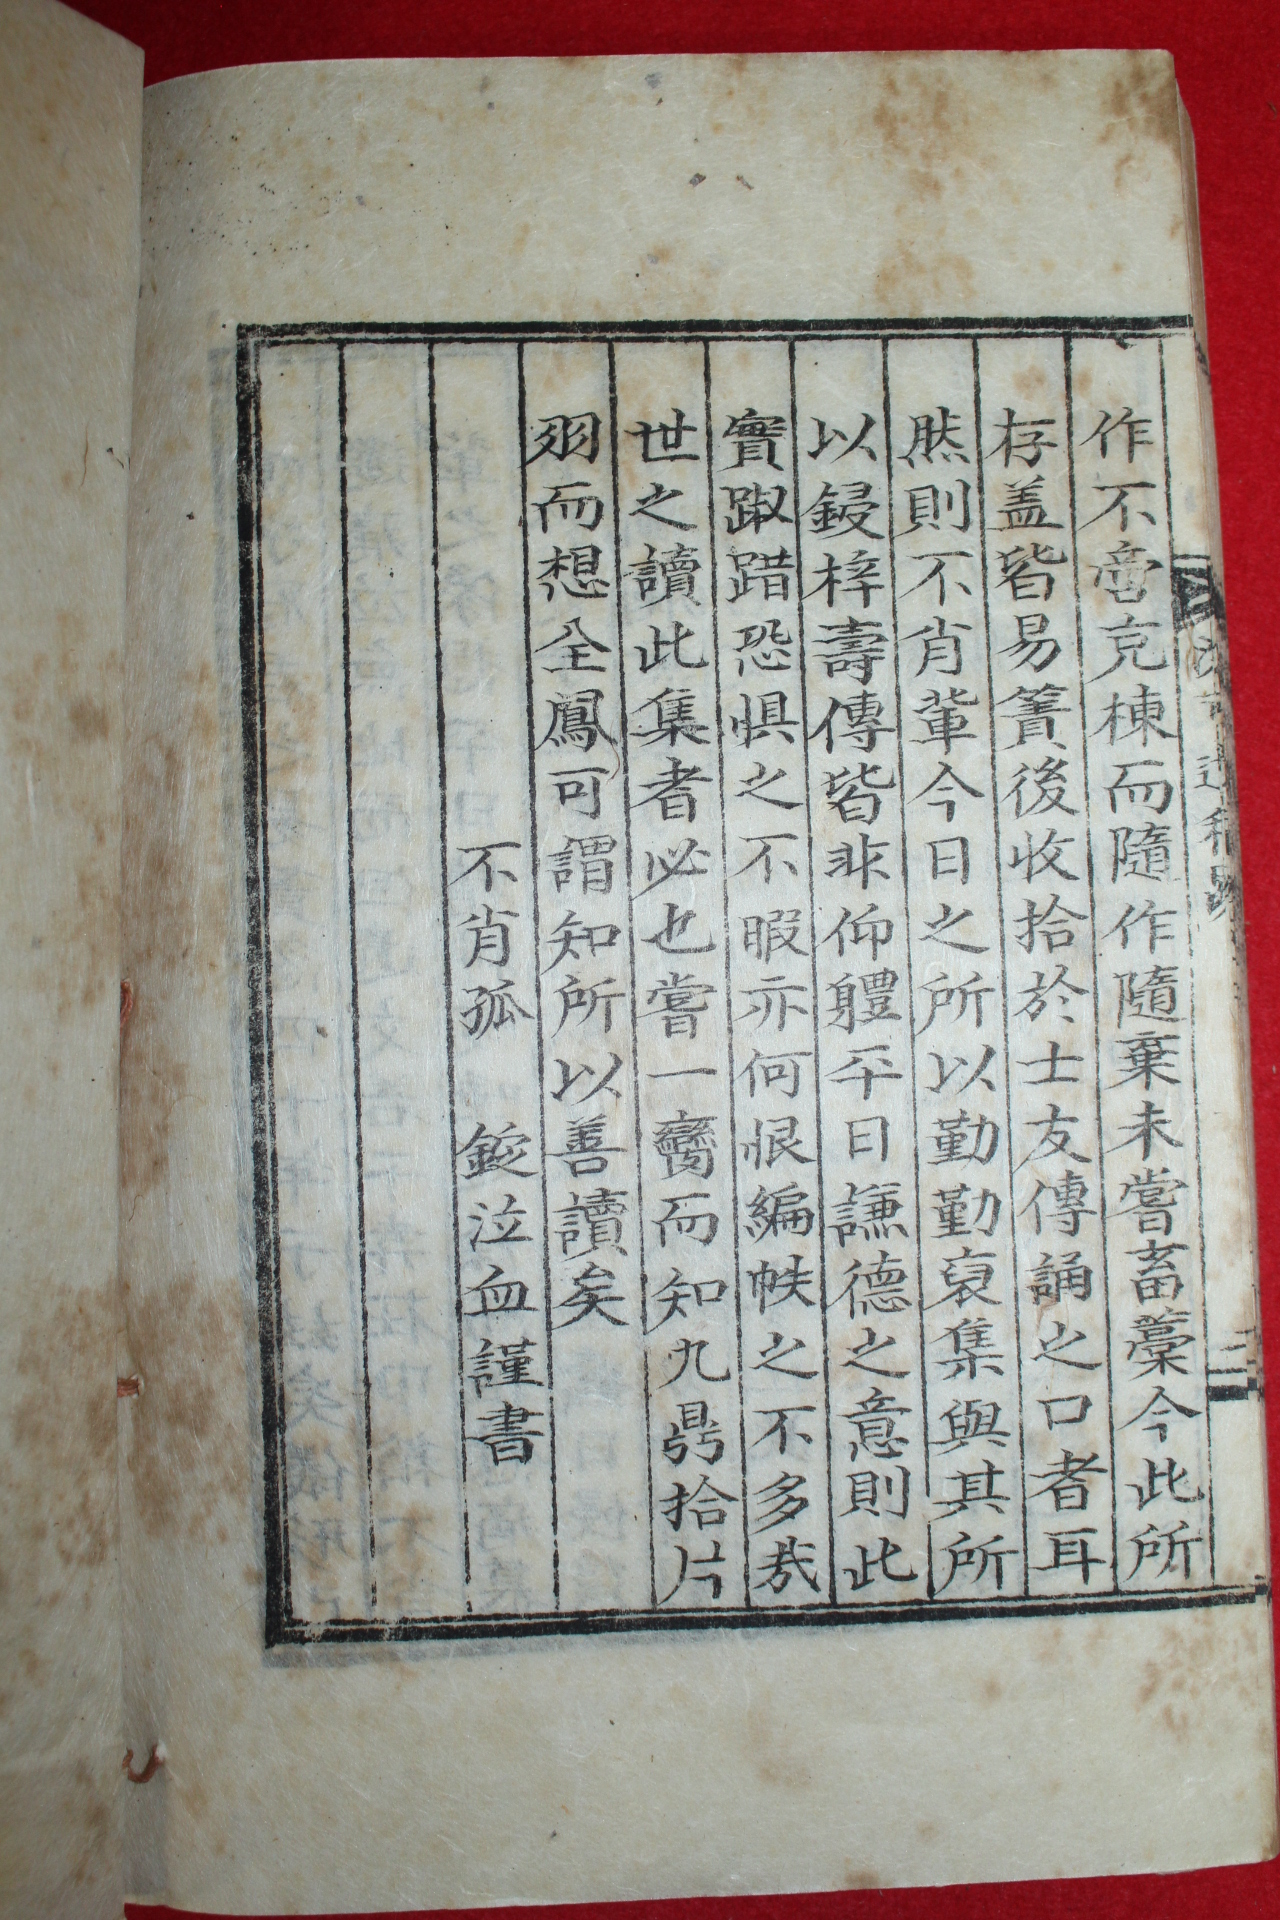 作不啻充棟而隨作隨棄未嘗畜藁今此所
存盖皆易簀後收拾於士友傳誦之口者耳
然則不肖輩今日之所以勤勤裒集與其所
以鋟梓壽傳皆非仰軆平日謙德之意則此
實踧踖恐惧之不暇亦何恨編帙之不多㢤
世之讀此集者必也嘗一臠而知九鼎拾片
羽而想全鳳可謂知所以善讀矣
不肖孤 鑀泣血謹書
遺稿跋
二